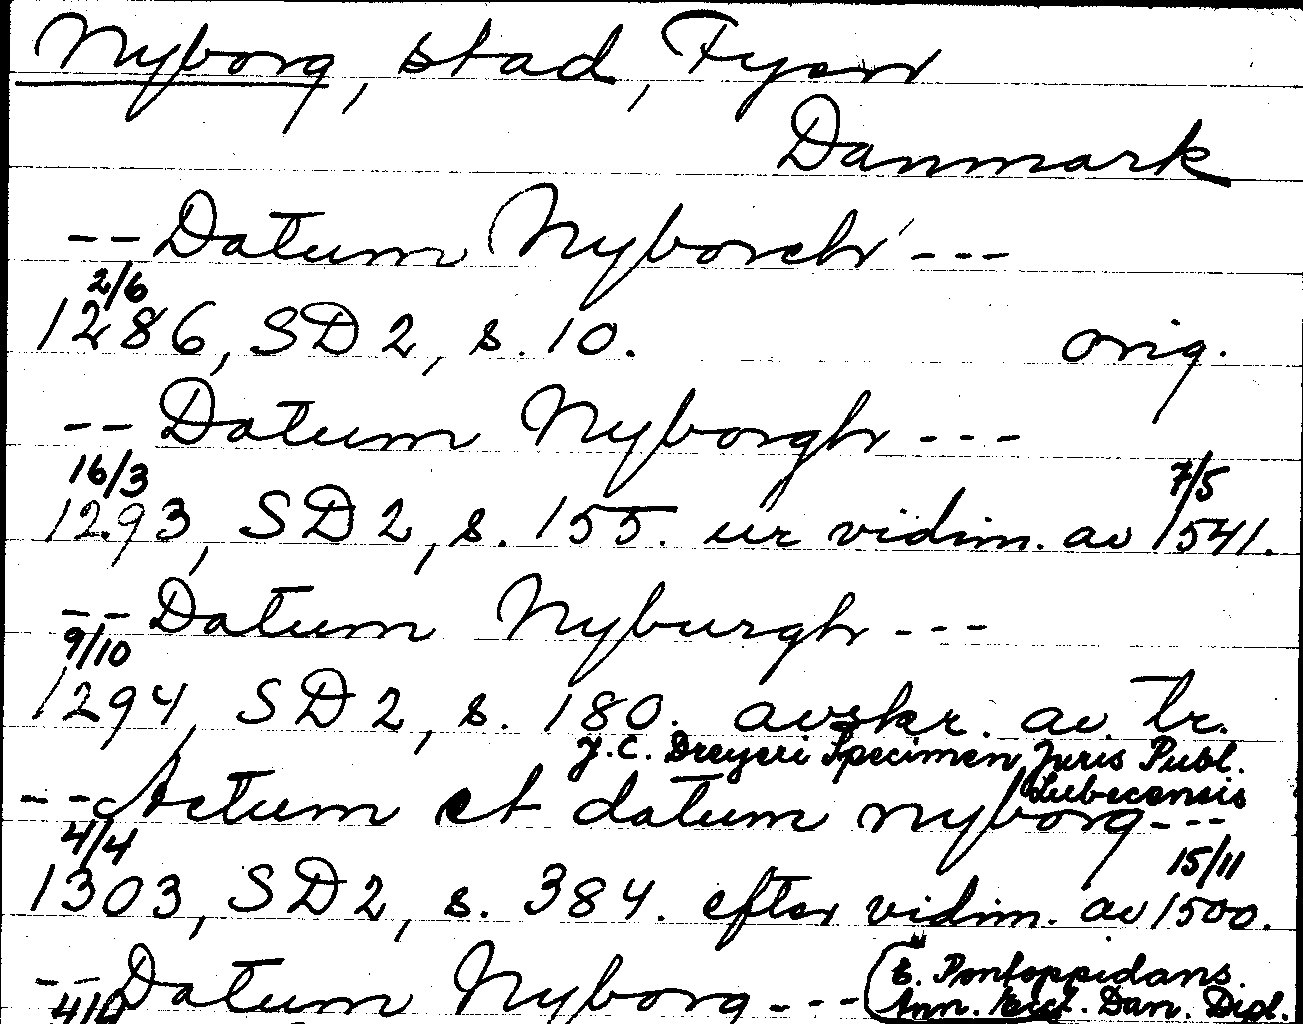 Nyborg, stad, Fyen
Danmark
-- Datum Nyborch ---
2/6
1286, SD 2, s. 10. orig.
-- Datum Nyborgh ---
16/3 7/5
1293, SD 2, s. 155. ur vidim. av 1541.
-- Datum Nyburgh ---
9/10
1294, SD 2, s. 180. avskr. av tr.
J. C. Dreyeri Specimen Juris Publ.
Lubecensis
-- Actum et datum nyborg ---
4/4 15/11
1303, SD 2, s. 384. efter vidim. av 1500.
-- Datum Nyborg --- (E. Pontoppidans
Ann. Eccl. Dan. Dipl.